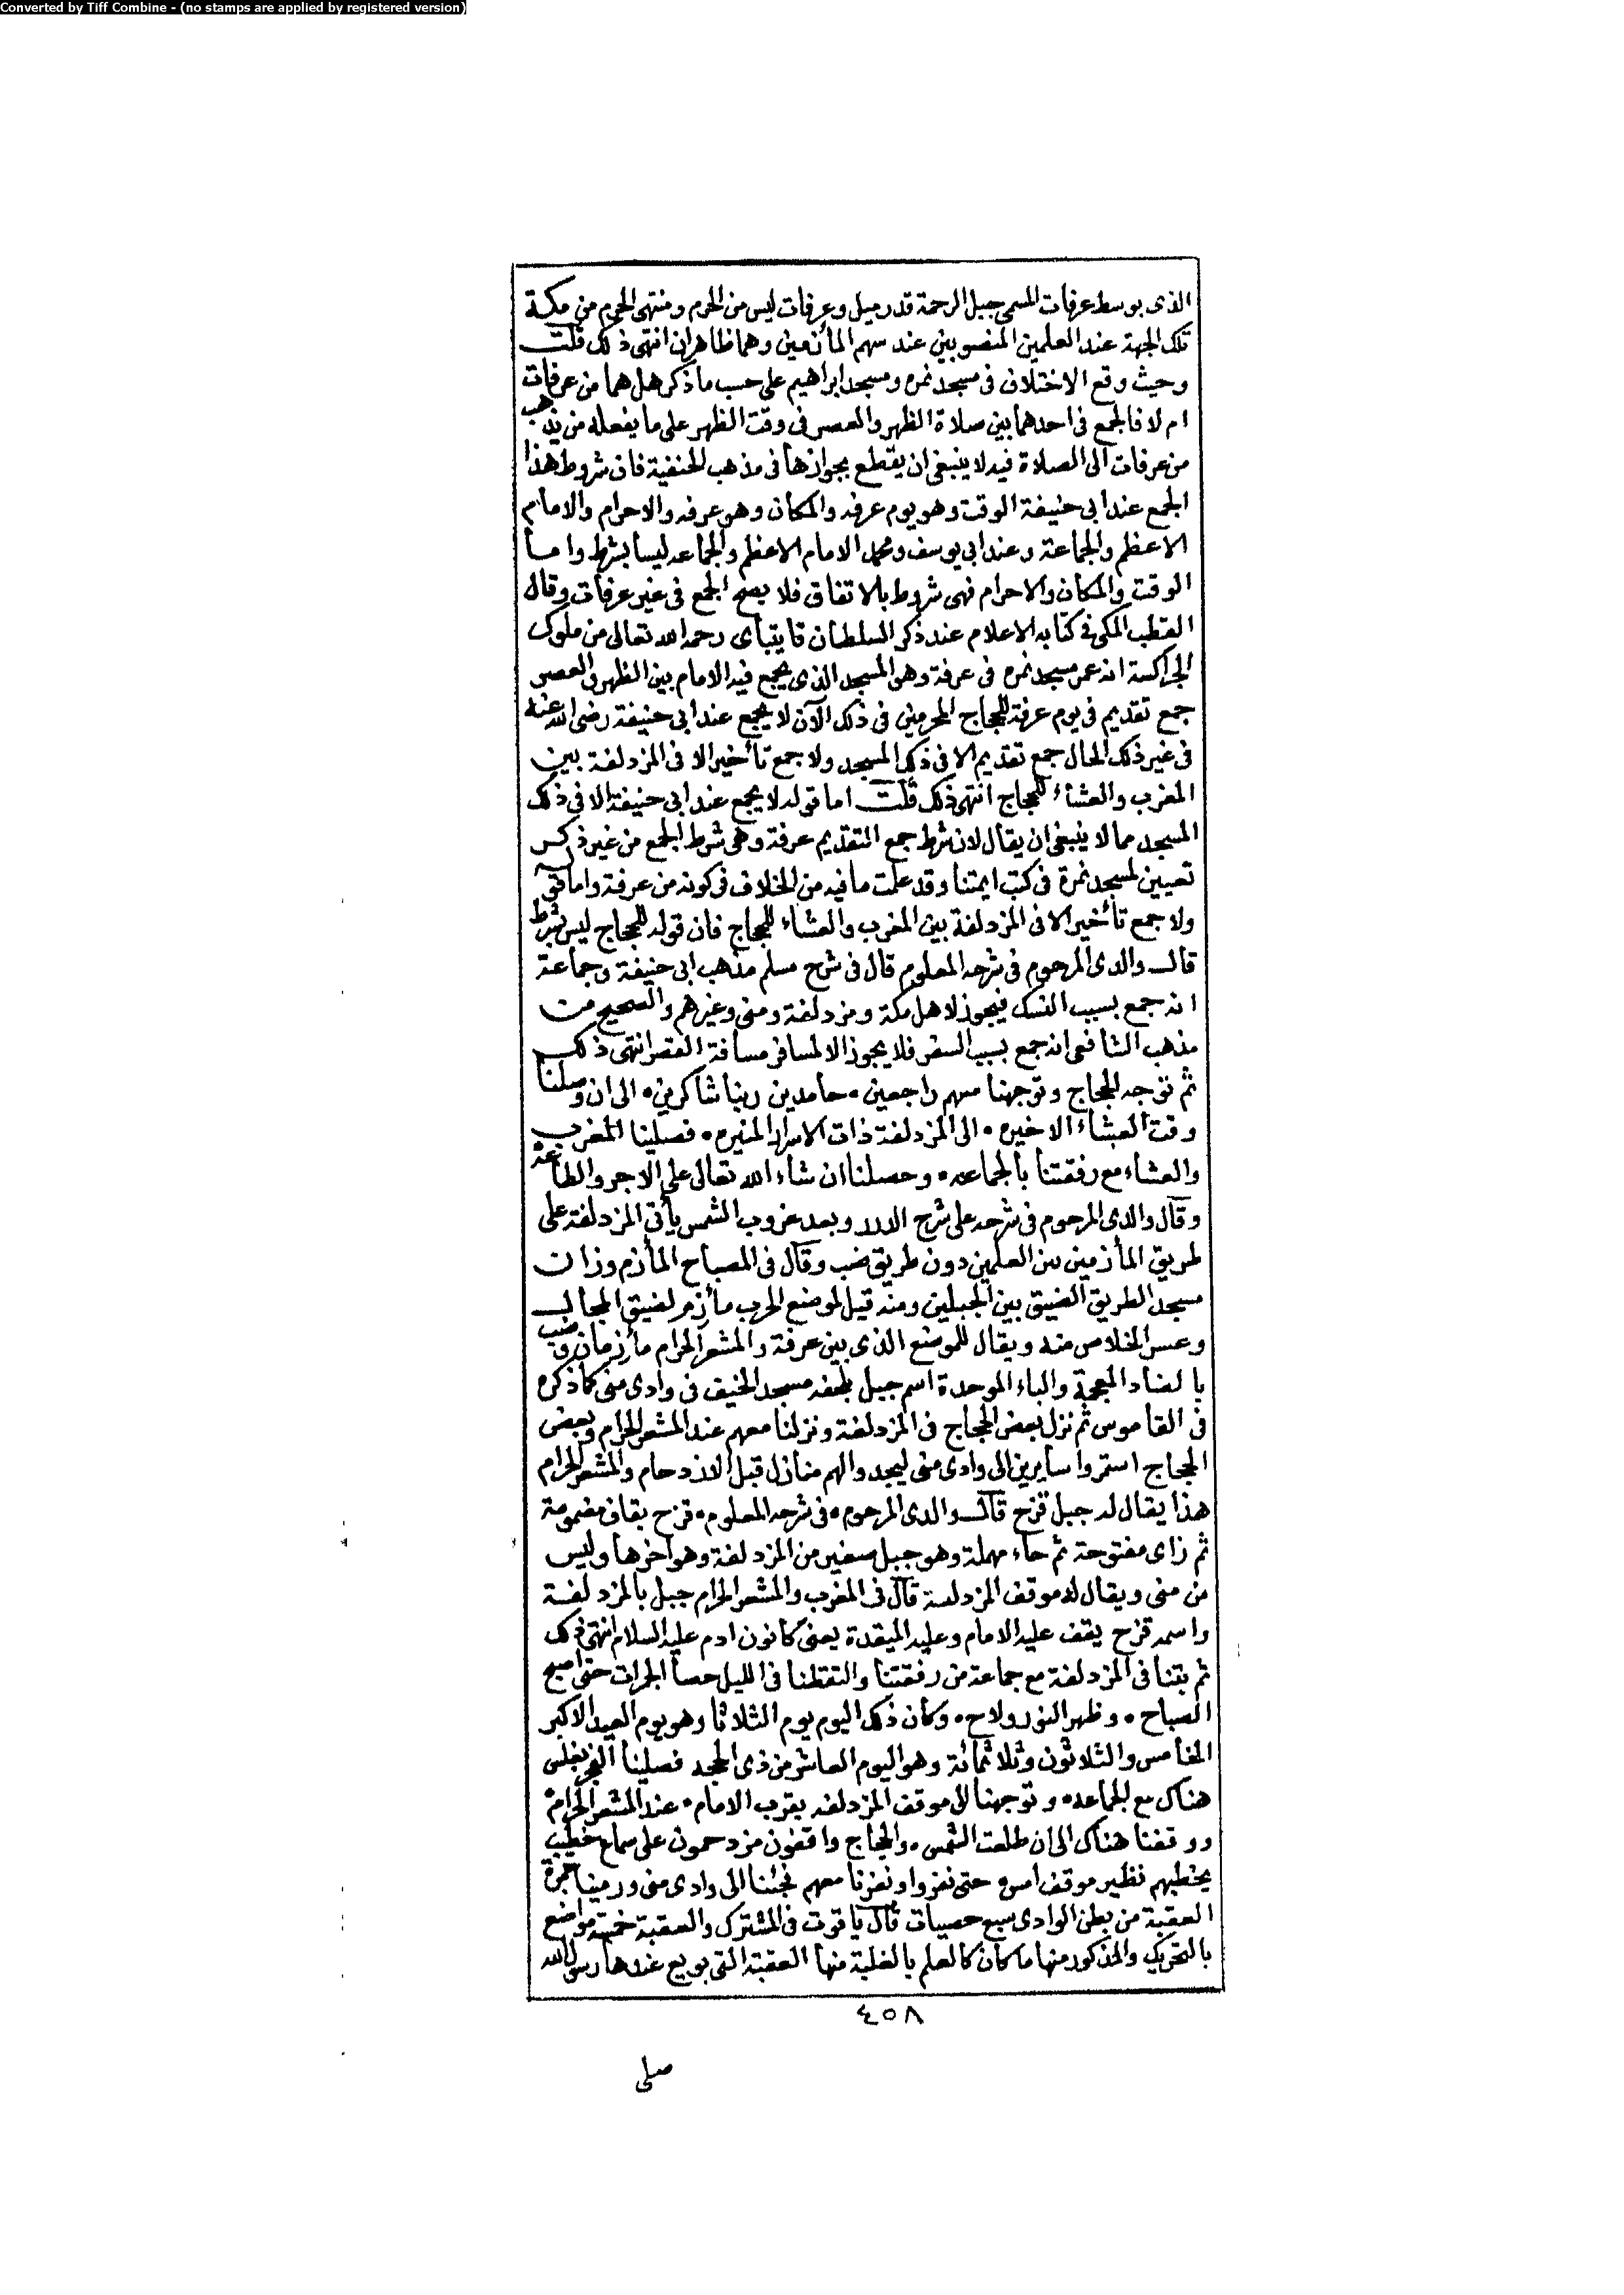 Converted by Tiff Combine - (no stamps are applied by registered version)
الذى بوسط عرفات المسمى جبل الرحمة قدر ميل وعرفات ليس من الحرم ومنتهى الحرم من مكة
تلك الجهة عند العلمين المنصوبين عند سهم المأزمين وهما ظاهران انتهى ذلك قلت
وحيث وقع الاختلاف فى مسجد نمره ومسجد ابراهيم على حسب ما ذكر هل هما من عرفات
ام لا فالجمع فى احدهما بين صلاة الظهر والعصر فى وقت الظهر على ما يفعله من يذهب
من عرفات الى الصلاة فيه لا ينبغى ان يقطع بجوازها فى مذهب الحنفية فان شروط هذا
الجمع عند ابى حنيفة الوقت وهو يوم عرفه والمكان وهو عرفه والاحرام والامام
الاعظم والجماعة وعند ابي يوسف ومحمد الامام الاعظم والجماعه ليسا بشرط واما
الوقت والمكان والاحرام فهى شروط بالاتفاق فلا يصح الجمع فى غير عرفات وقال
القطب المكى فى كتابه الاعلام عند ذكر السلطان قايتباى رحمه الله تعالى من ملوك
الجراكسة انه عمر مسجد نمره فى عرفة وهو المسجد الذى يجمع فيه الامام بين الظهر والعصر
جمع تقديم فى يوم عرفة للحجاج المحرمين فى ذلك الآن لا يجمع عند ابى حنيفة رضى الله عنه
فى غير ذلك الحال جمع تقديم الا فى ذلك المسجد ولا جمع تأخير الا فى المزدلفة بين
المغرب والعشاء للحجاج انتهى ذلك قلت اما قوله لا يجمع عند ابى حنيفة الا فى ذلك
المسجد مما لا ينبغى ان يقال لان شرط جمع التقديم عرفة وهى شرط الجمع من غير ذكر
تعيين لمسجد نمرة فى كتب ايمتنا وقد علمت ما فيه من الخلاف فى كونه من عرفة واما قوله
ولا جمع تأخير الا فى المزدلفة بين المغرب والعشاء للحجاج فان قوله للحجاج ليس بشرط
قال والدى المرحوم فى شرحه المعلوم قال فى شرح مسلم مذهب ابى حنيفة وجماعة
انه جمع بسبب النسك فيجوز لاهل مكة ومزدلفة ومنى وغيرهم والصحيح من
مذهب الشافعى انه جمع بسبب السفر فلا يجوز الا لمسافر مسافة القصر انتهى ذلك
ثم توجه الحجاج وتوجهنا معهم راجعين ٠ حامدين ربنا شاكرين ٠ الى ان وصلنا
وقت العشاء الاخيره ٠ الى المزدلفة ذات الاسرار المنيره ٠ فصلينا المغرب
والعشاء مع رفقتنا بالجماعه ٠ وحصلنا ان شاء الله تعالى على الاجر والطاعة
وقال والدى المرحوم فى شرحه على شرح الدرر وبعد غروب الشمس يأتى المزدلفة على
طريق المأزمين بين العلمين دون طريق ضب وقال فى المصباح المأزم وزان
مسجد الطريق الضيق بين الجبلين ومنه قيل لموضع الحرب مأزم لضيق المجال
وعسر الخلاص منه ويقال للموضع الذى بين عرفة والمشعر الحرام مأزمان وضب
بالضاد المعجمة والباء الموحدة اسم جبل بلحفه مسجد الخيف فى وادى منى كما ذكره
فى القاموس ثم نزل بعض الحجاج فى المزدلفة ونزلنا معهم عند المشعر الحرام وبعض
الحجاج استمروا سايرين الى وادى منى ليجدوا لهم منازل قبل الازدحام والمشعر الحرام
هذا يقال له جبل قزح قال والدى المرحوم ٠ فى شرحه المعلوم ٠ قزح بقاف مضمومة
ثم زاى مفتوحة ثم حاء مهملة وهو جبل صغير من المزدلفة وهو اخرها وليس
من منى ويقال له موقف المزدلفة قال فى المغرب والمشعر الحرام جبل بالمزدلفة
واسمه قزح يقف عليه الامام وعليه الميقدة يعنى كانون ادم عليه السلام انتهى ذلك
ثم بتنا فى المزدلفة مع جماعة من رفقتنا والتقطنا فى الليل حصا الجمرات حتى اصبح
الصباح ٠ وظهر النور ولاح ٠ وكان ذلك اليوم يوم الثلاثا وهو يوم العيد الاكبر
الخامس والثلاثون وثلاثمائة وهو اليوم العاشر من ذى الحجه فصلينا الفجر بغلس
هناك مع الجماعه ٠ وتوجهنا الى موقف المزدلفه بقرب الامام ٠ عند المشعر الحرام
ووقفنا هناك الى ان طلعت الشمس ٠ والحجاج واقفون مزدحمون على سماع خطيب
يخطبهم نظير موقف امس ٠ حتى نفروا ونفرنا معهم فجئنا الى وادى منى ورمينا جمرة
العقبة من بطن الوادى بسبع حصيات قال ياقوت فى المشترك والعقبة خمسة مواضع
بالتحريك والمذكور منها ما كان كالعلم بالغلبة منها العقبة التى بويع عندها رسول الله
٤٥٨
صلى